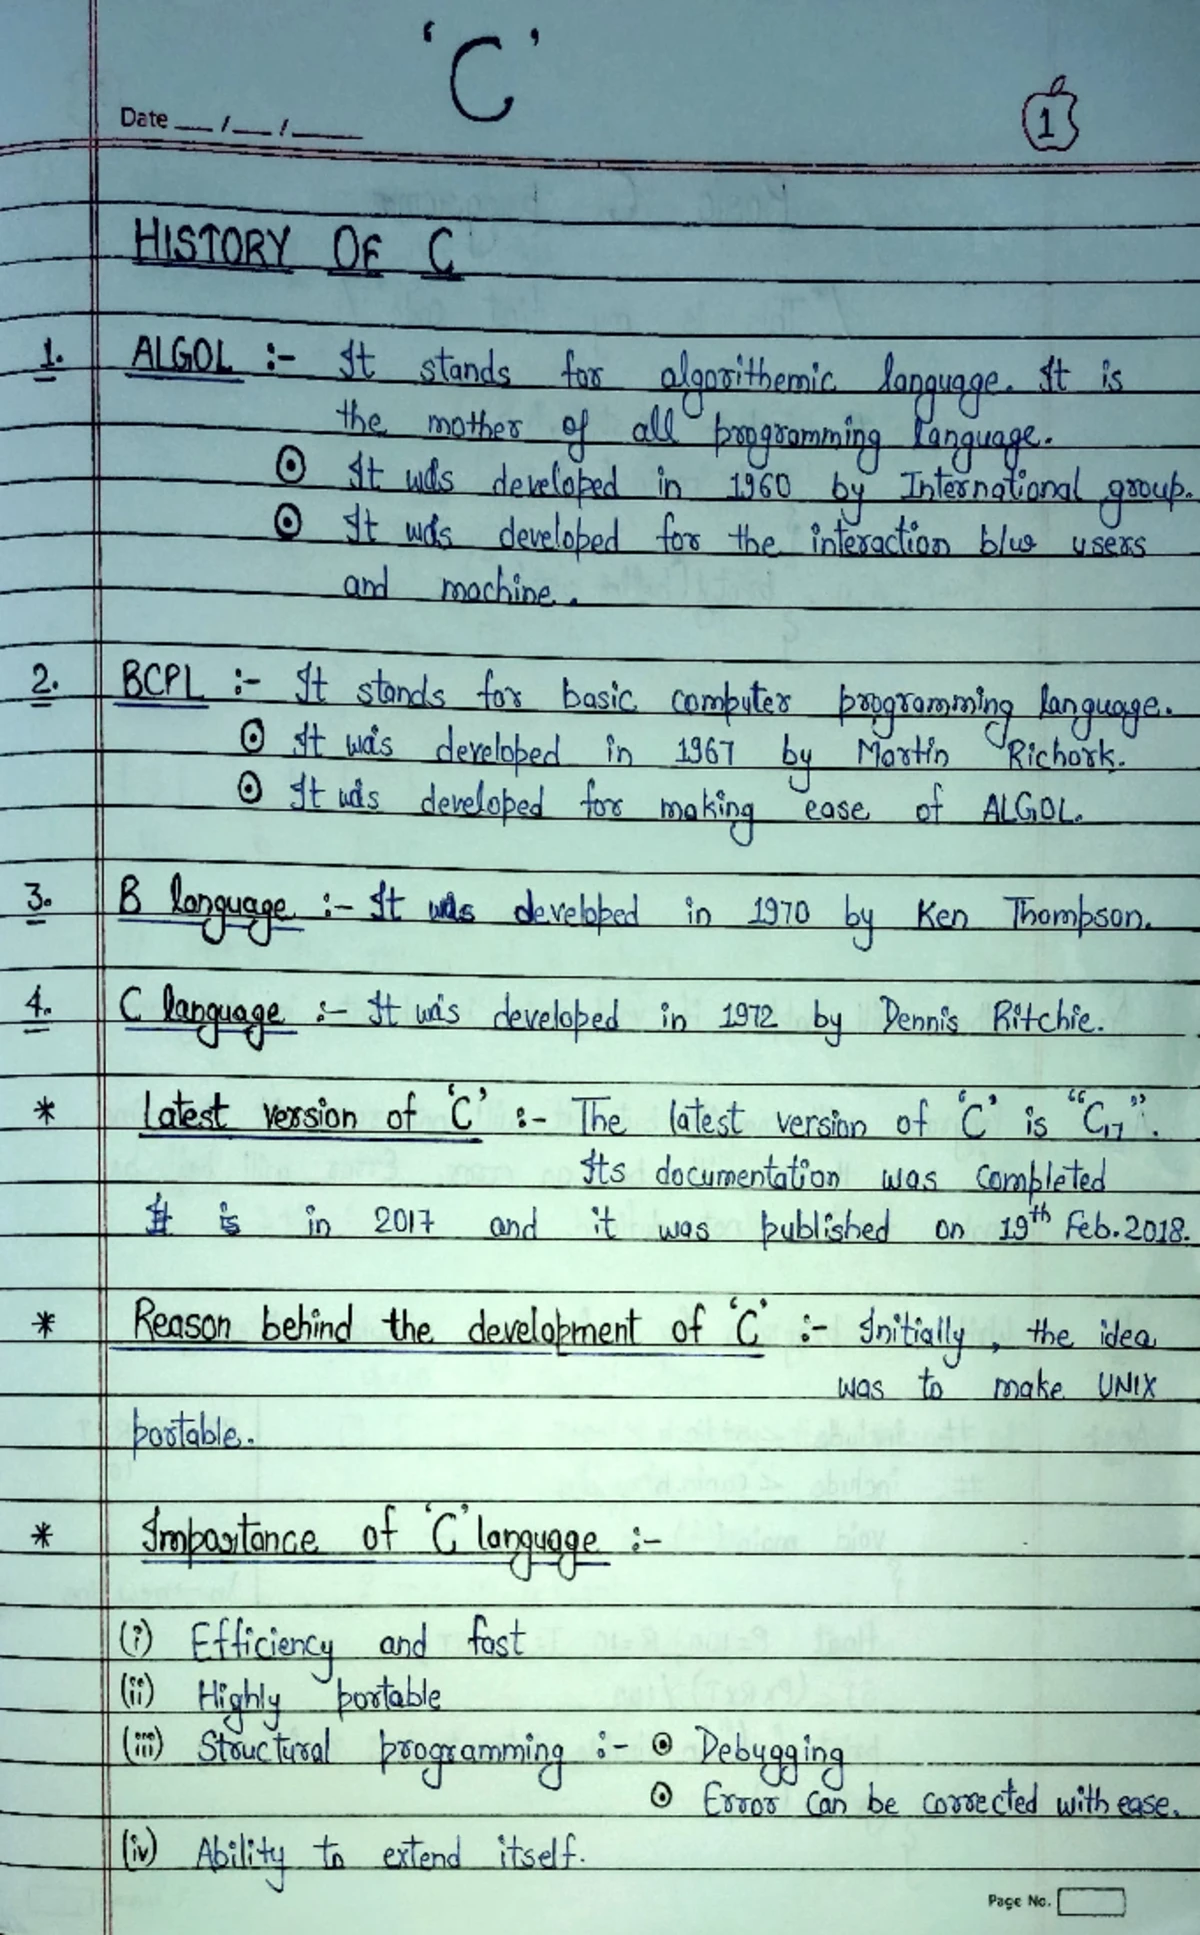 'C'
Date __/__/____
1
HISTORY OF C
1. ALGOL :- It stands for algorithemic language. It is
the mother of all programming language.
It was developed in 1960 by International group.
It was developed for the interaction b/w users
and machine.
2. BCPL :- It stands for basic computer programming language.
It was developed in 1967 by Martin Richark.
It was developed for making ease of ALGOL.
3. B language :- It was developed in 1970 by Ken Thompson.
4. C language :- It was developed in 1972 by Dennis Ritchie.
* Latest version of 'C' :- The latest version of 'C' is "C17".
Its documentation was completed
It is in 2017 and it was published on 19th Feb. 2018.
* Reason behind the development of 'C' :- Initially, the idea
was to make UNIX
portable.
* Importance of 'C' language :-
(i) Efficiency and fast
(ii) Highly portable
(iii) Structural programming :- Debugging
Error can be corrected with ease.
(iv) Ability to extend itself.
Page No.